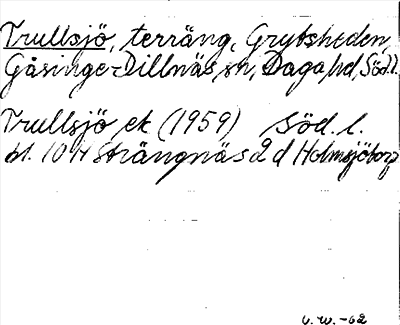 Trullsjö, terräng, Grytsheden,
Gåsinge-Dillnäs sn, Daga hd, Söd.l.
Trullsjö ek (1959) Söd. l.
bl. 10 H Strängnäs 2 d Holmsjötorp
U.W. -62